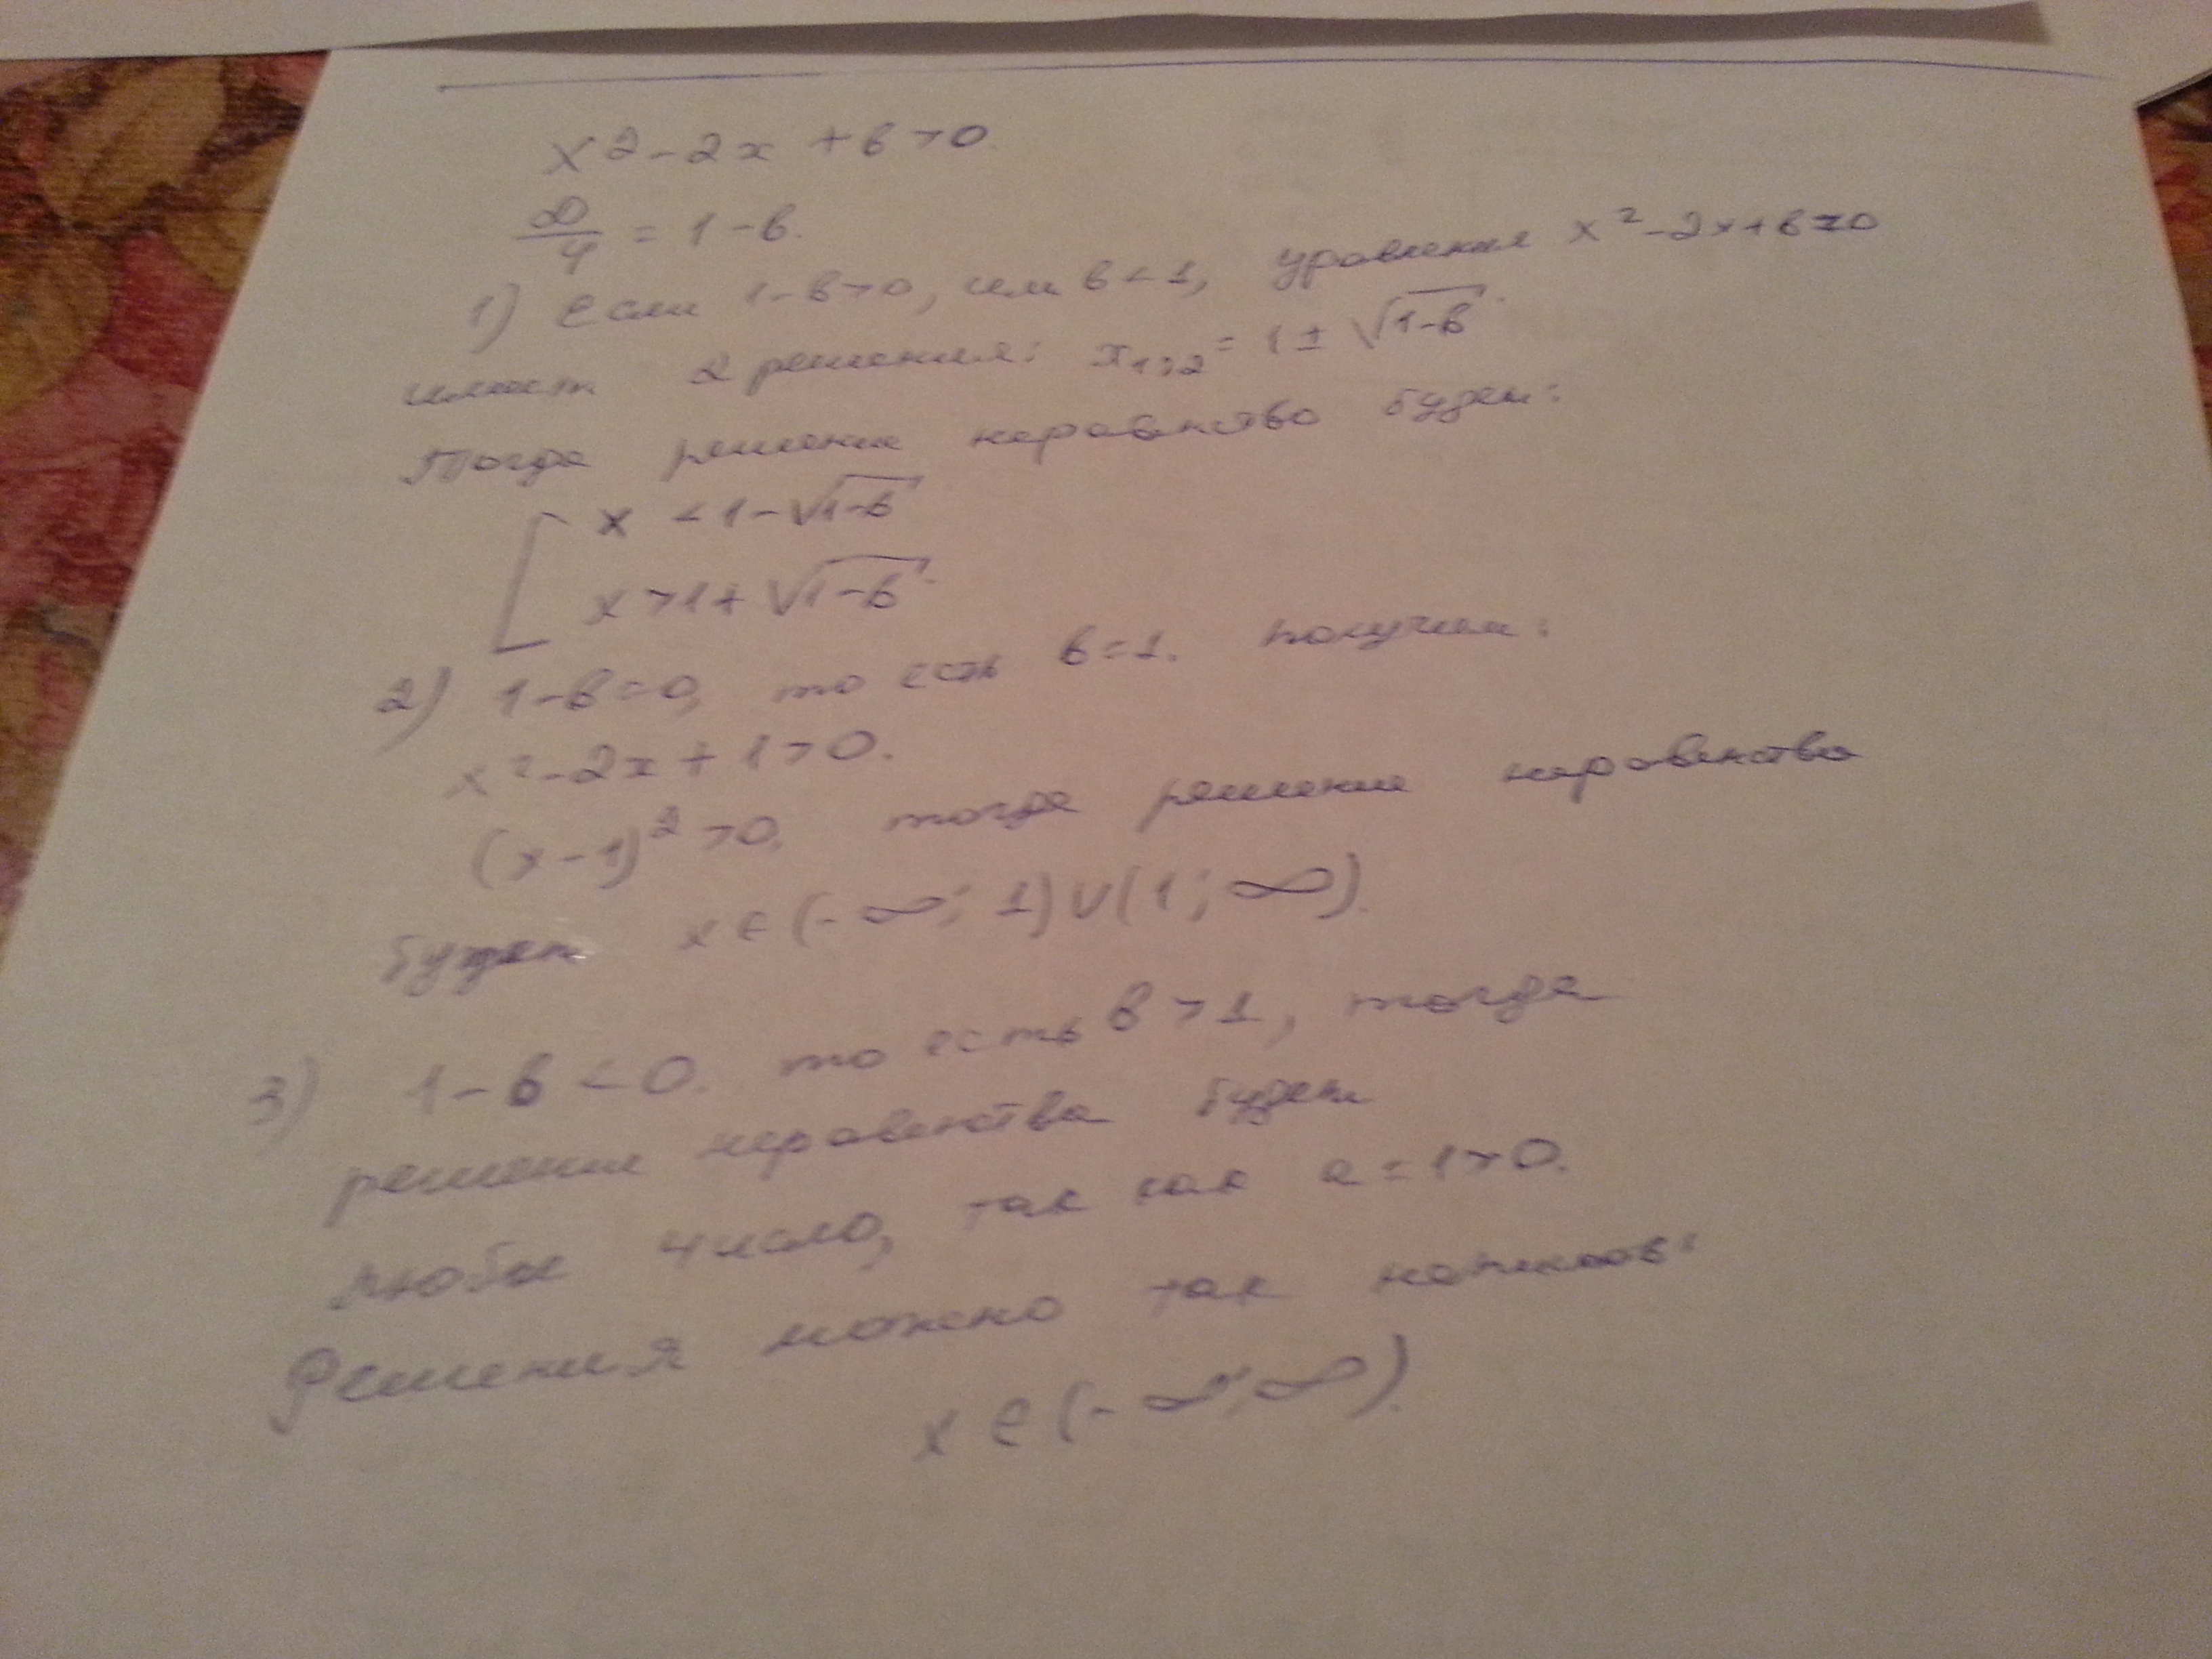 x² - 2x + b > 0
D/4 = 1 - b.
1) Если 1-b>0, или b < 1, уравнения x² - 2x + b = 0
имеет 2 решения: x₁,₂ = 1 ± √(1-b).
Тогда решение неравенство будет:
[ x < 1 - √(1-b)
x > 1 + √(1-b).
2) 1-b=0, то есть b=1. Получим:
x² - 2x + 1 > 0.
(x - 1)² > 0, тогда решение неравенства
будет x ∈ (-∞; 1) ∪ (1; ∞).
3) 1 - b < 0. то есть b > 1, тогда
решение неравенства будет
любое число, так как a = 1 > 0.
Решения можно так написать:
x ∈ (-∞; ∞).